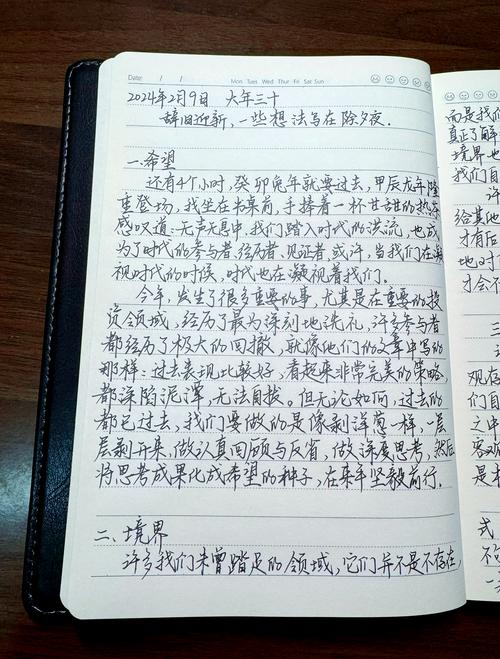 Date: / /
Mon Tues Wed Thur Fri Sat Sun
2024年2月9日 大年三十
辞旧迎新,一些想法写在除夕夜.
一.希望
还有4个小时,癸卯兔年就要过去,甲辰龙年隆
重登场,我坐在书桌前,手捧着一杯甘甜的热茶
感叹道:无声无息中,我们踏入时代的洪流,也成
为了时代的参与者,经历者,见证者,或许,当我们在凝
视时代的时候,时代也在凝视着我们.
今年,发生了很多重要的事,尤其是在重要的投
资领域,经历了最为深刻地洗礼,许多参与者
都经历了极大的回撤,就像他们的文章中写的
那样:过去表现比较好,看起来非常完美的策略,
都深陷泥潭,无法自拔.但无论如何,过去的
都已过去,我们要做的是像剥洋葱一样,一层
层剥开来,做认真回顾与反省,做深度思考,然后
将思考成果化成希望的种子,在来年坚毅前行.
二、境界
许多我们未曾踏足的领域,它们并不是不存在,
而是我们
真正了解
境界也
我们自
许
给其他
才有后
地对
才会不
三
观存
们自
之中
客观
是不
式
不
一